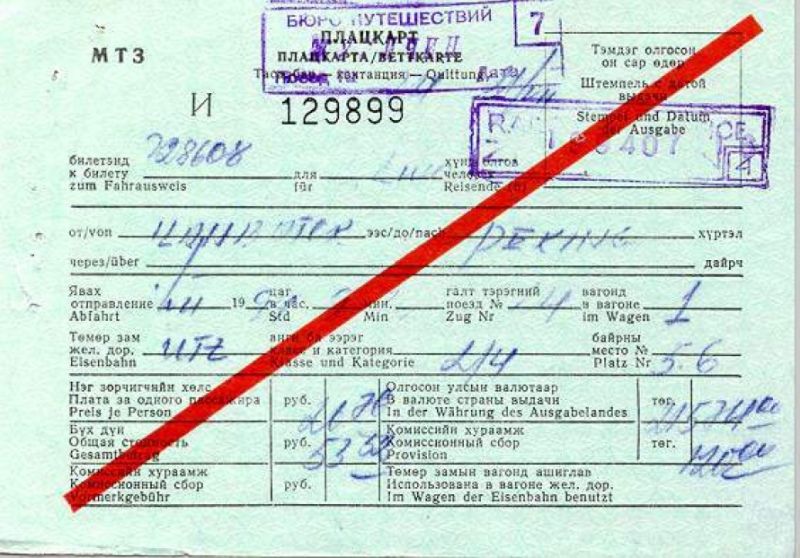 БЮРО ПУТЕШЕСТВИЙ
7
МТЗ
ПЛАЦКАРТ
ПЛАЦКАРТА/BETTKARTE
квитанция — Quittung
Дата
И
129899
Тэмдэг олгосон
он сар өдөр
Штемпель с датой
выдачи
Stempel und Datum
der Ausgabe
билетэнд
к билету
zum Fahrausweis
728608
для
für
хүнд олгов
человек
Reisende
от/von
ээс/до/nach
PEKING
хүртэл
через/über
дайрч
Явах
отправление
Abfahrt
III
19
цаг
в час.
Std
мин.
Min
галт тэрэгний
поезд №
Zug Nr
вагонд
в вагоне
im Wagen
1
Төмөр зам
жел. дор.
Eisenbahn
анги ба зэрэг
класс и категория
Klasse und Kategorie
2/4
байрны
место №
Platz Nr
5.6
Нэг зорчигчийн хөлс
Плата за одного пассажира
Preis je Person
руб.
Олгосон улсын валютаар
В валюте страны выдачи
In der Währung des Ausgabelandes
төг.
Бүх дүн
Общая стоимость
Gesamtbetrag
руб.
53
Комиссийн хураамж
Комиссионный сбор
Provision
төг.
Комиссийн хураамж
Комиссионный сбор
Vormerkgebühr
руб.
Төмөр замын вагонд ашиглав
Использована в вагоне жел. дор.
Im Wagen der Eisenbahn benutzt